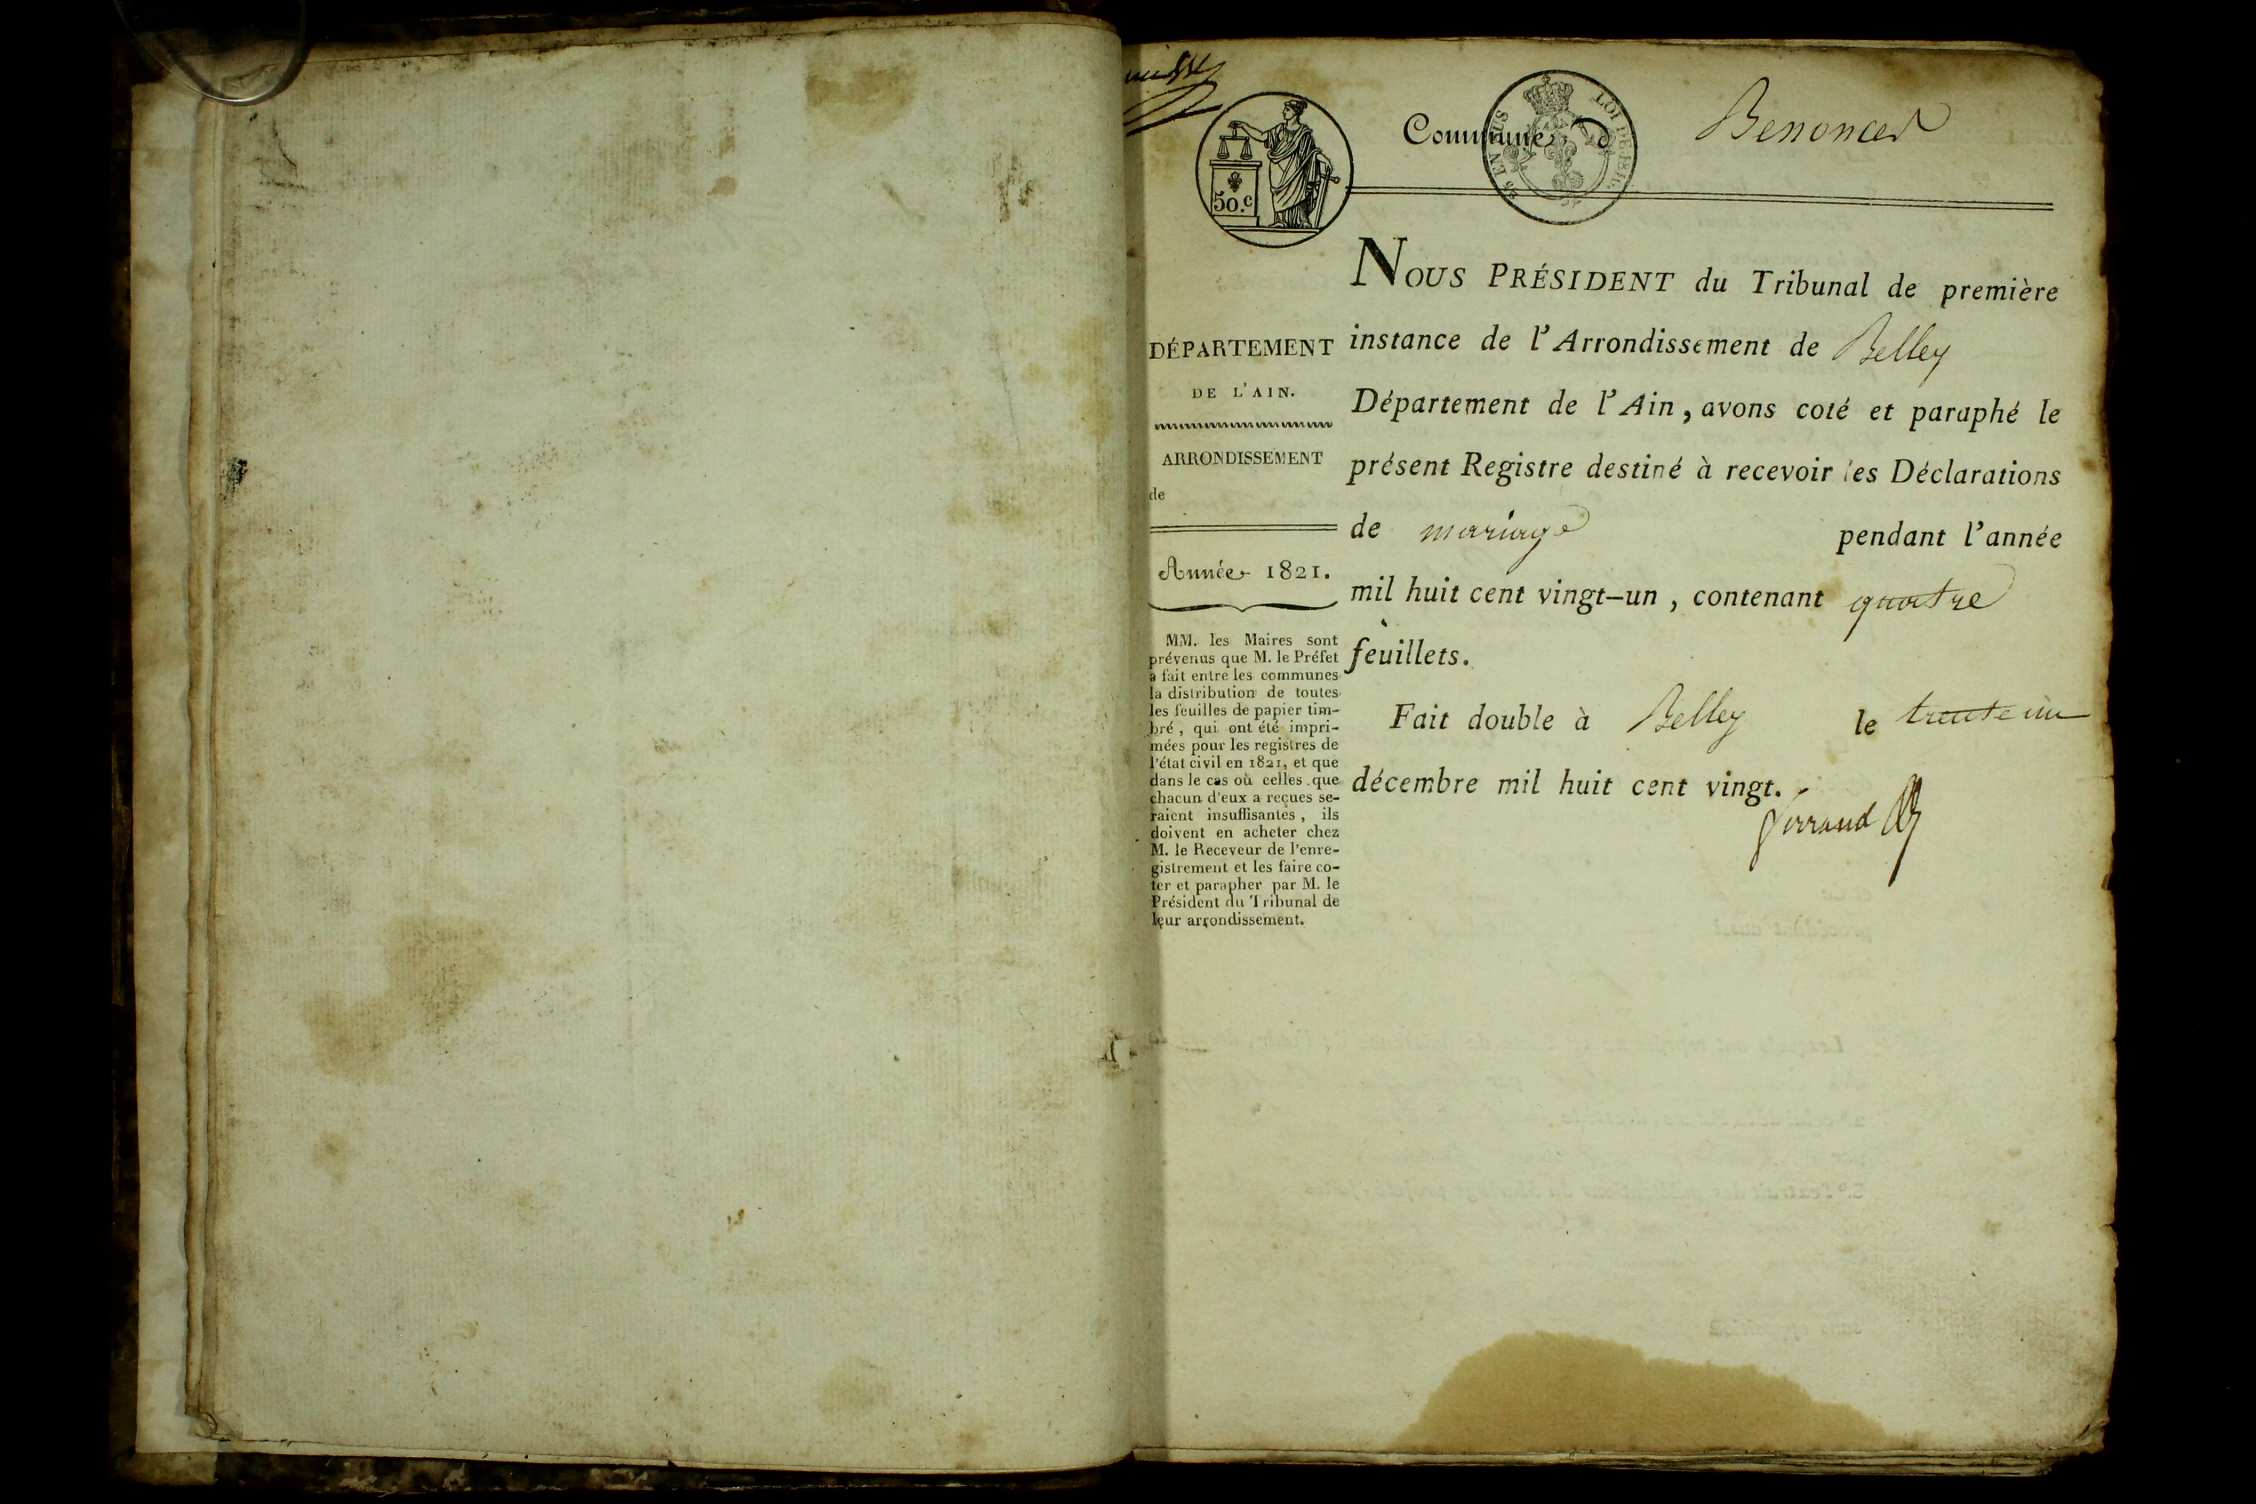 Commune d Benonces
50.c
LOI DE 1816.
25 EN SUS
NOUS PRÉSIDENT du Tribunal de première
instance de l'Arrondissement de Belley
Département de l'Ain, avons coté et paraphé le
présent Registre destiné à recevoir les Déclarations
de mariage pendant l'année
mil huit cent vingt-un, contenant quatre
feuillets.
Fait double à Belley le trente un
décembre mil huit cent vingt.
DÉPARTEMENT
DE L'AIN.
ARRONDISSEMENT
de
Année 1821.
MM. les Maires sont
prévenus que M. le Préfet
a fait entre les communes
la distribution de toutes
les feuilles de papier tim-
bré, qui ont été impri-
mées pour les registres de
l'état civil en 1821, et que
dans le cas où celles que
chacun d'eux a reçues se-
raient insuffisantes, ils
doivent en acheter chez
M. le Receveur de l'enre-
gistrement et les faire co-
ter et parapher par M. le
Président du Tribunal de
leur arrondissement.